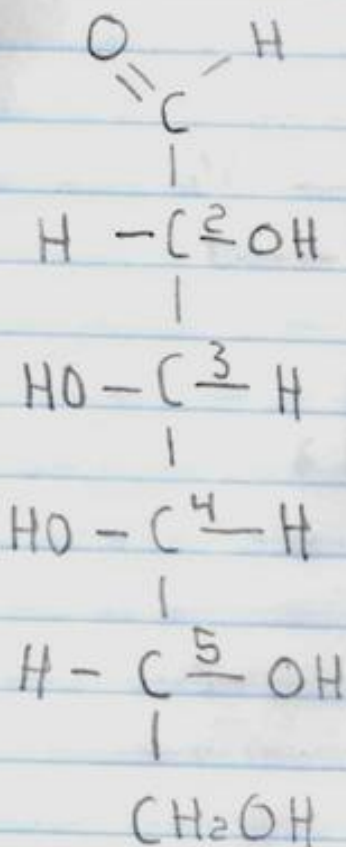 O H
C
H - C 2 OH
HO - C 3 H
HO - C 4 H
H - C 5 OH
CH2OH